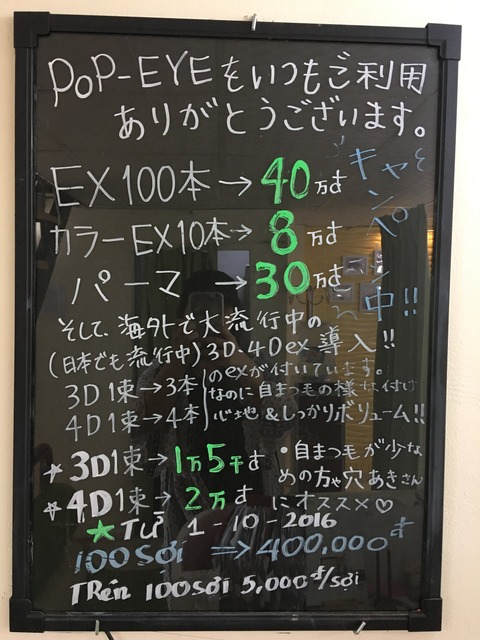 POP-EYEをいつもご利用
ありがとうございます。
EX100本→40万đ
カラーEX10本→8万đ
パーマ →30万đ
キャンペーン中!!
そして、海外で大流行中の
(日本でも流行中)3D・4Dex導入!!
3D1束→3本
4D1束→4本
のexが付いています。
なのに自まつ毛の様な付け
心地&しっかりボリューム!!
☆3D1束→1万5千đ
☆4D1束→2万đ
・自まつ毛が少な
めの方や穴あきさん
にオススメ♡
★Từ 1-10-2016
100sợi => 400,000đ
TRên 100sợi 5,000đ/sợi